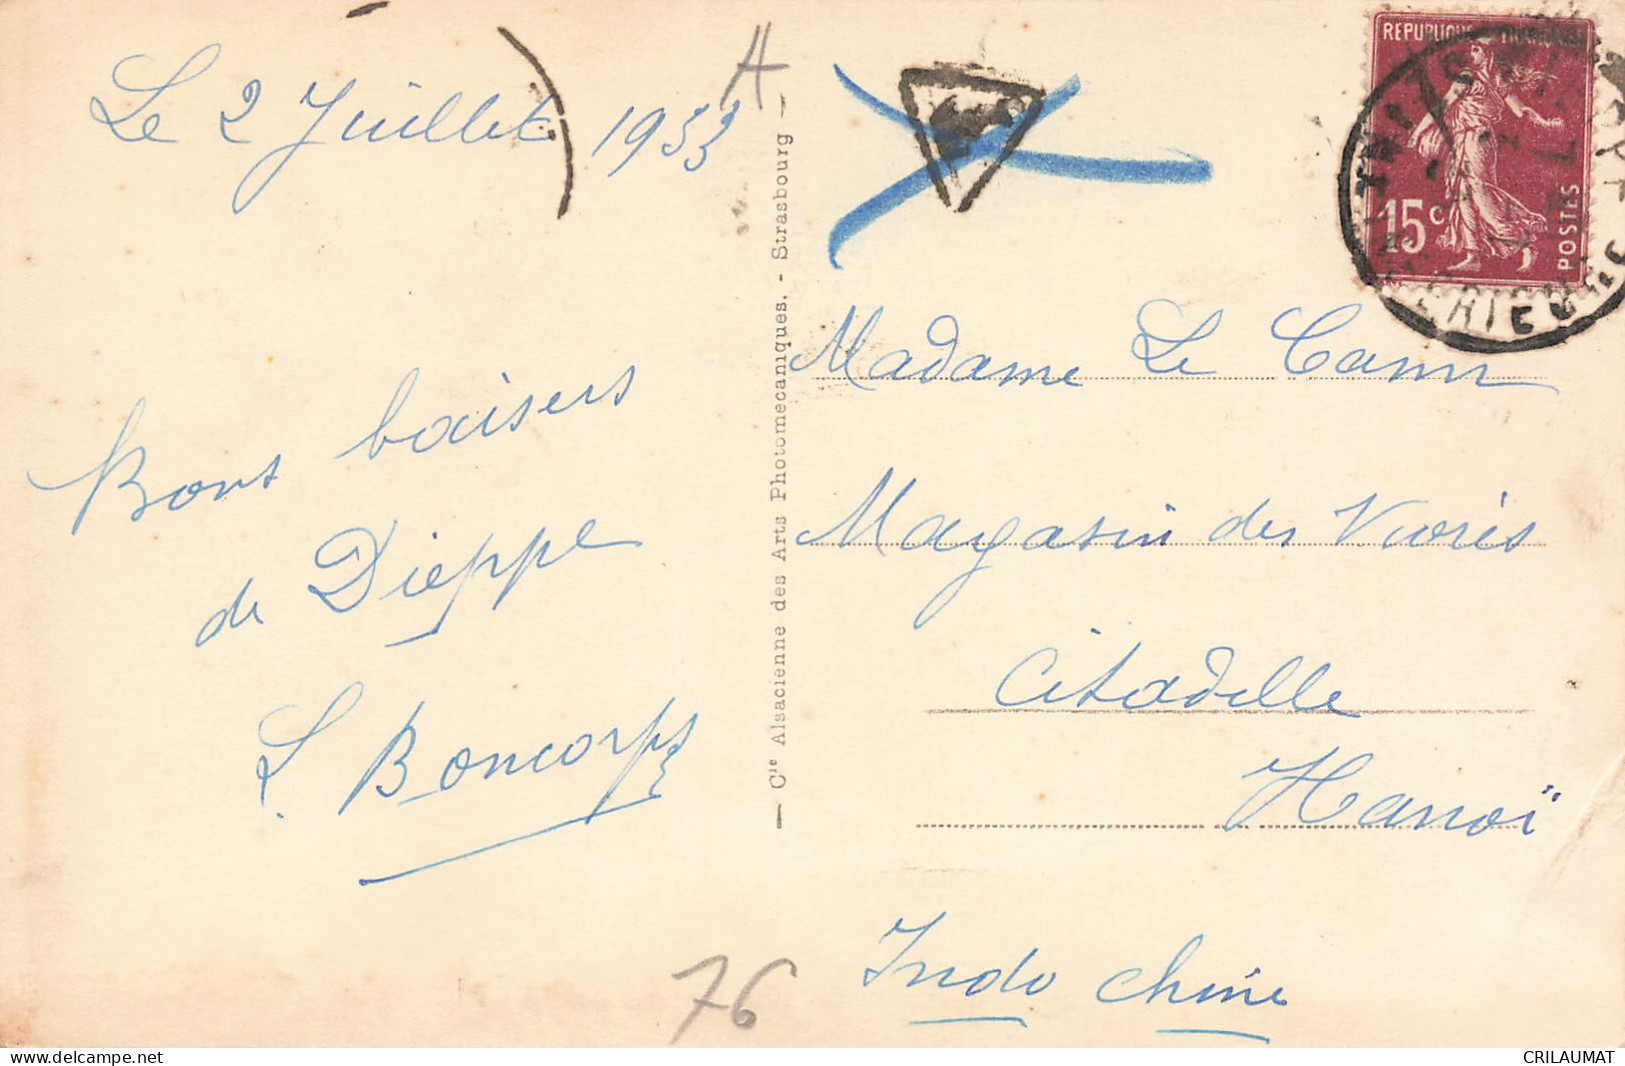 Le 2 Juillet 1933
A
Bons baisers
de Dieppe
L. Boncorps
76
— Cie Alsacienne des Arts Photomécaniques. - Strasbourg —
REPUBLIQUE FRANÇAISE
15c
POSTES
Madame Le Cann
Magasin des Vivres
Citadelle
Hanoï
Indo Chine
delcampe.net
CRILAUMAT